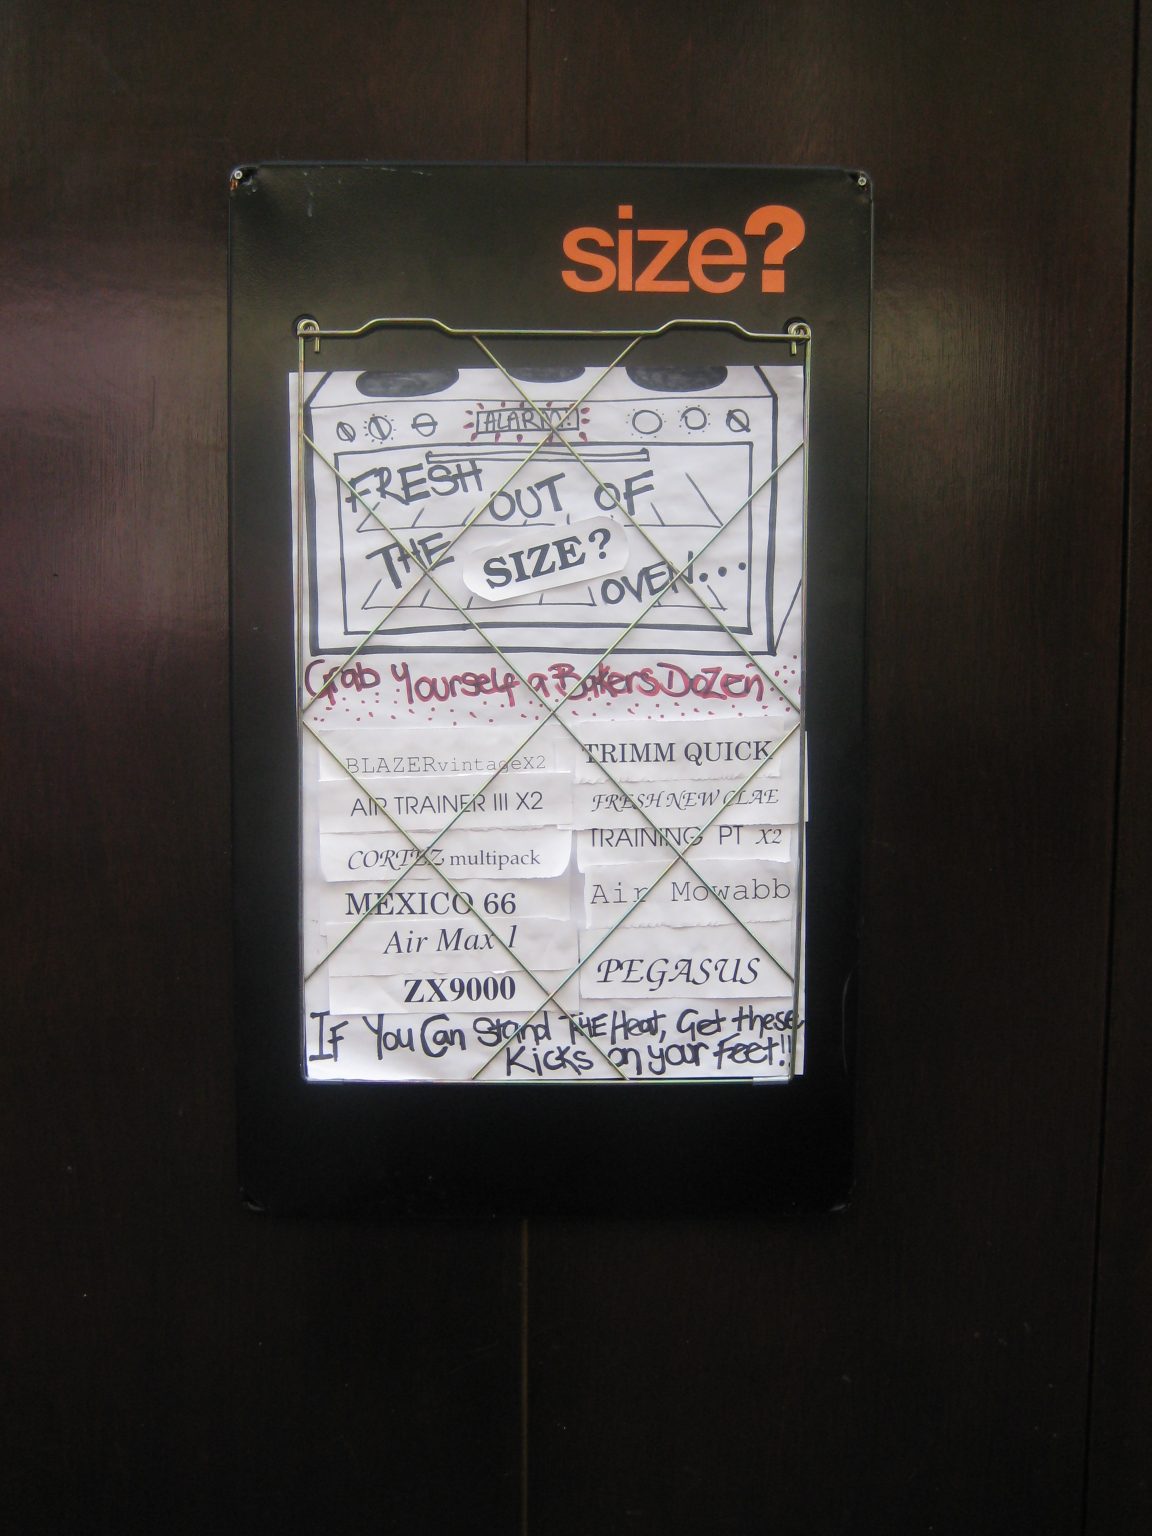 size?
ALARM!
FRESH OUT OF
THE SIZE? OVEN...
Grab Yourself a Bakers Dozen
BLAZERvintageX2
AIR TRAINER III X2
CORTEZ multipack
MEXICO 66
Air Max 1
ZX9000
TRIMM QUICK
FRESH NEW CLAE
TRAINING PT X2
Air Mowabb
PEGASUS
IF You Can Stand THE Heat, Get these
Kicks on your Feet!!